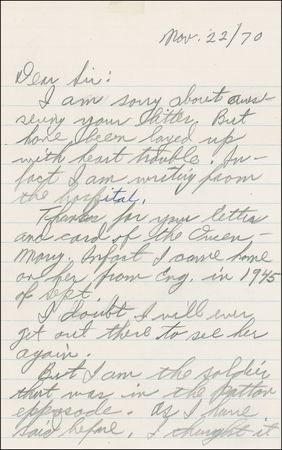 Nov. 22/70
Dear Sir:
I am sorry about answ-
sering your letter. But
have been layed up
with heart trouble. In-
fact I am writing from
the hospital.
Thanks for your letter
and card of the Queen-
Mary. Infact I came home
on her from Eng. in 1945
of Sept.
I doubt I will ever
get out there to see her
again.
But I am the soldier
that was in the Patton
eppysode. As I have
said before, I thought it